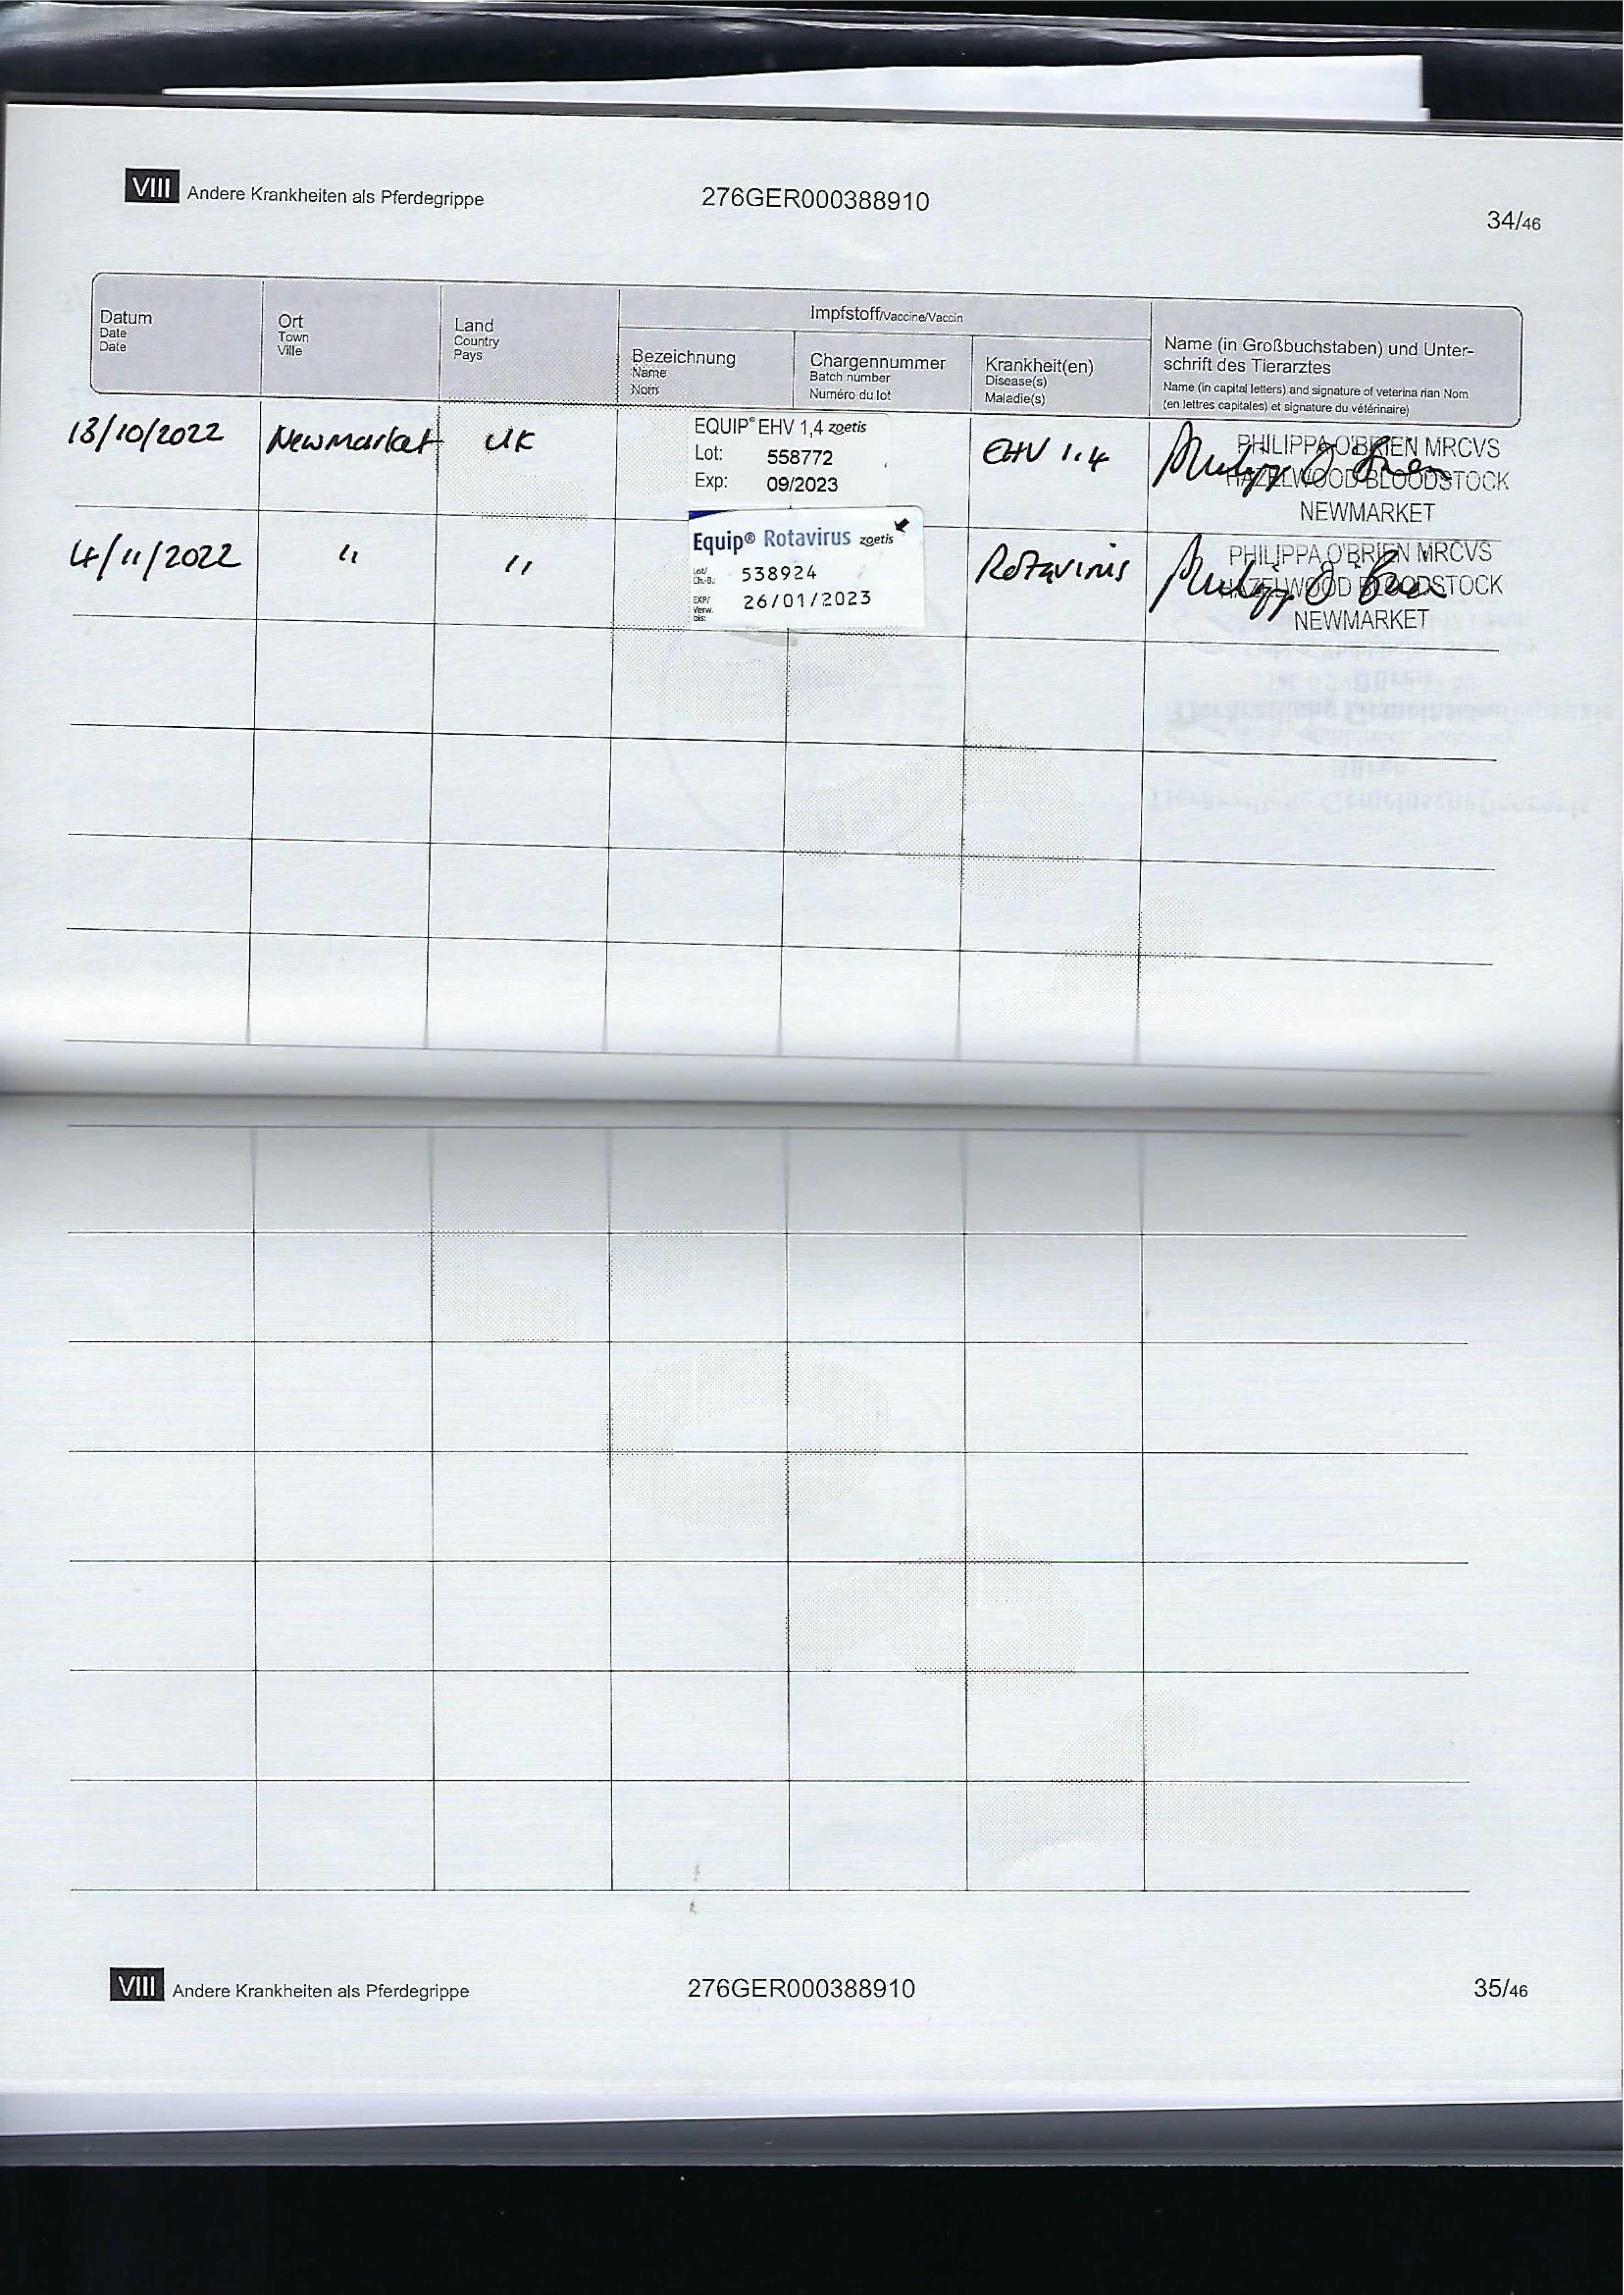 VIII Andere Krankheiten als Pferdegrippe
276GER000388910
34/46
Datum
Date
Date
Ort
Town
Ville
Land
Country
Pays
Impfstoff/Vaccine/Vaccin
Bezeichnung
Name
Nom
Chargennummer
Batch number
Numéro du lot
Krankheit(en)
Disease(s)
Maladie(s)
Name (in Großbuchstaben) und Unter-
schrift des Tierarztes
Name (in capital letters) and signature of veterina rian Nom
(en lettres capitales) et signature du vétérinaire)
13/10/2022
Newmarket
UK
EQUIP® EHV 1,4 zoetis
Lot: 558772
Exp: 09/2023
EHV 1.4
PHILIPPA O'BRIEN MRCVS
HAZELWOOD BLOODSTOCK
NEWMARKET
4/11/2022
"
"
Equip® Rotavirus zoetis
Lot/
Ch.-B.: 538924
EXP/
Verw.
bis: 26/01/2023
Rotavirus
PHILIPPA O'BRIEN MRCVS
HAZELWOOD BLOODSTOCK
NEWMARKET
VIII Andere Krankheiten als Pferdegrippe
276GER000388910
35/46